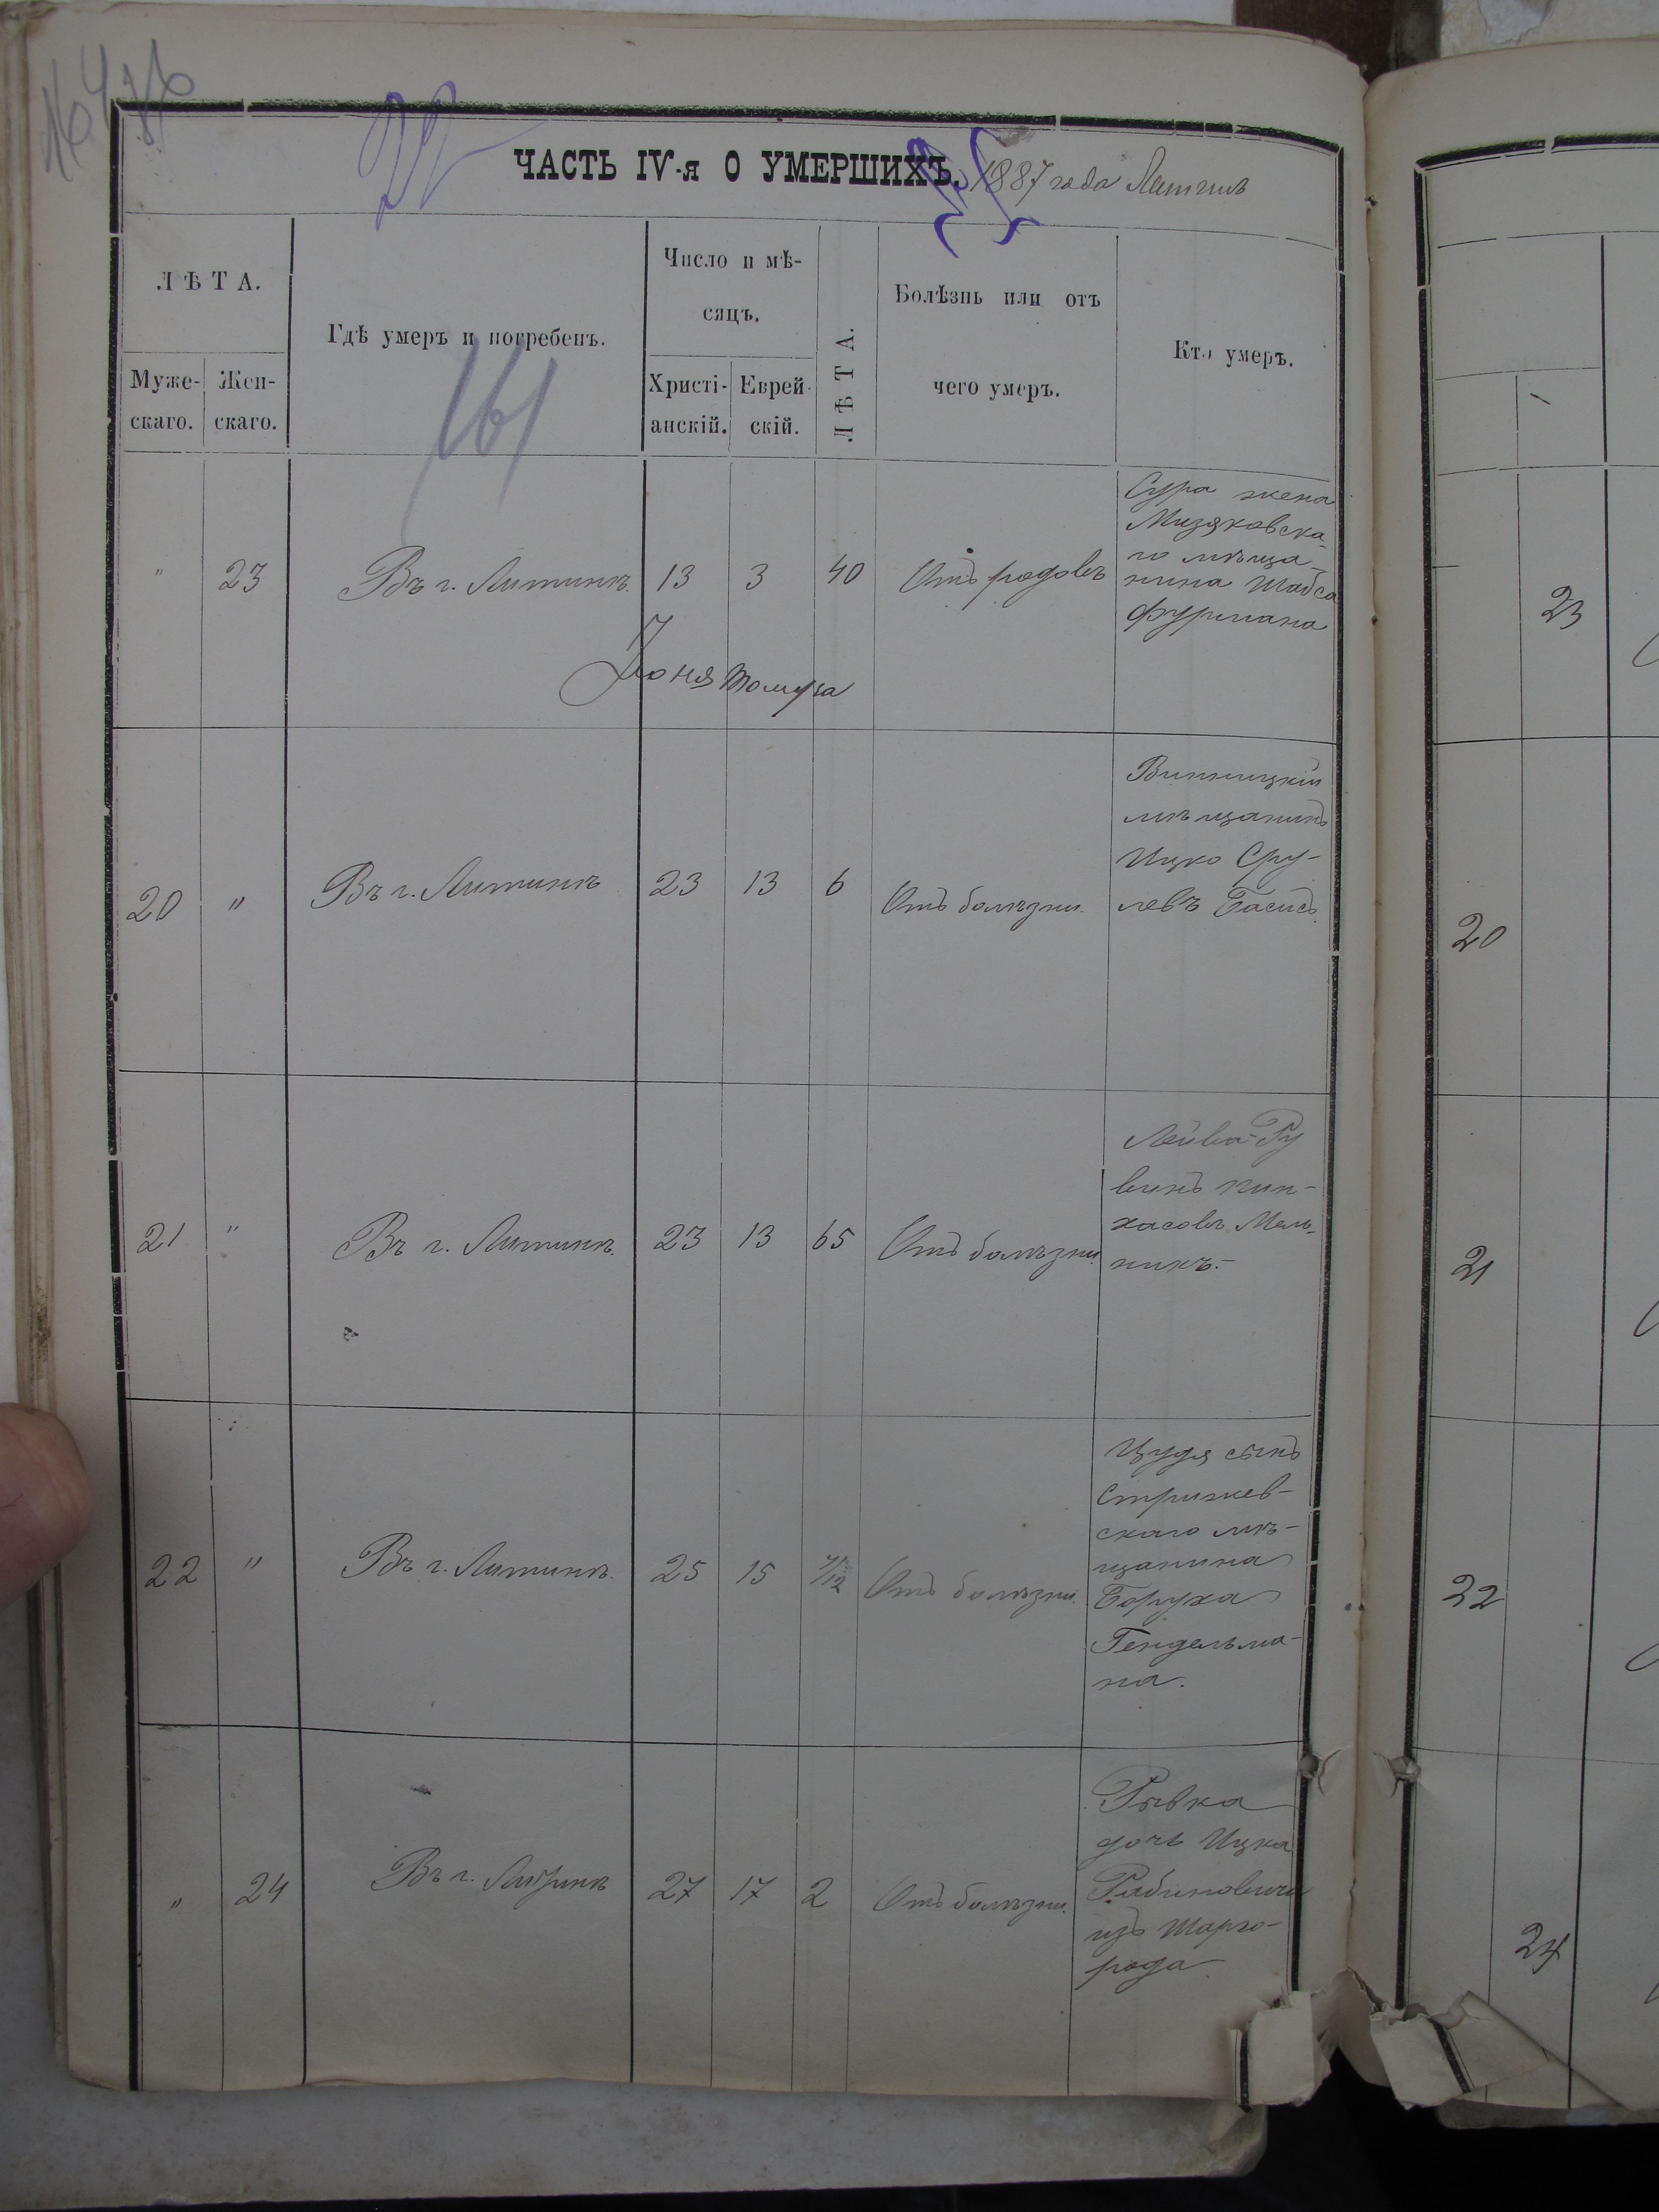 ЧАСТЬ IV-я О УМЕРШИХЪ. 1887 года Литинъ
ЛѢТА.
Муже-
скаго.
Жен-
скаго.
Гдѣ умеръ и погребенъ.
Число и мѣ-
сяцъ.
Христі-
анскій.
Еврей-
скій.
ЛѢТА.
Болѣзнь или отъ
чего умеръ.
Кто умеръ.
161
" 23 Въ г. Литинѣ. 13 3 40 Отъ родовъ
Сура жена
Мизяковска-
го мѣща-
нина Шабса
Фурмана
Іюня Томуза
20 " Въ г. Литинѣ 23 13 6 Отъ болѣзни.
Винницкій
мѣщанинъ
Ицко Сру-
левъ Басисъ.
21 " Въ г. Литинѣ. 23 13 65 Отъ болѣзни.
Лейба-Ру
винъ Пин-
хасовъ Мель-
никъ.-
22 " Въ г. Литинѣ. 25 15 Отъ болѣзни.
сынъ
Стрижев-
скаго мѣ-
щанина
Боруха
Гендельма-
на.
" 24 Въ г. Литинѣ 27 17 2 Отъ болѣзни.
Рывка
дочь Ицка
Рабиновича
изъ Шарго-
рода
23
20
21
22
24